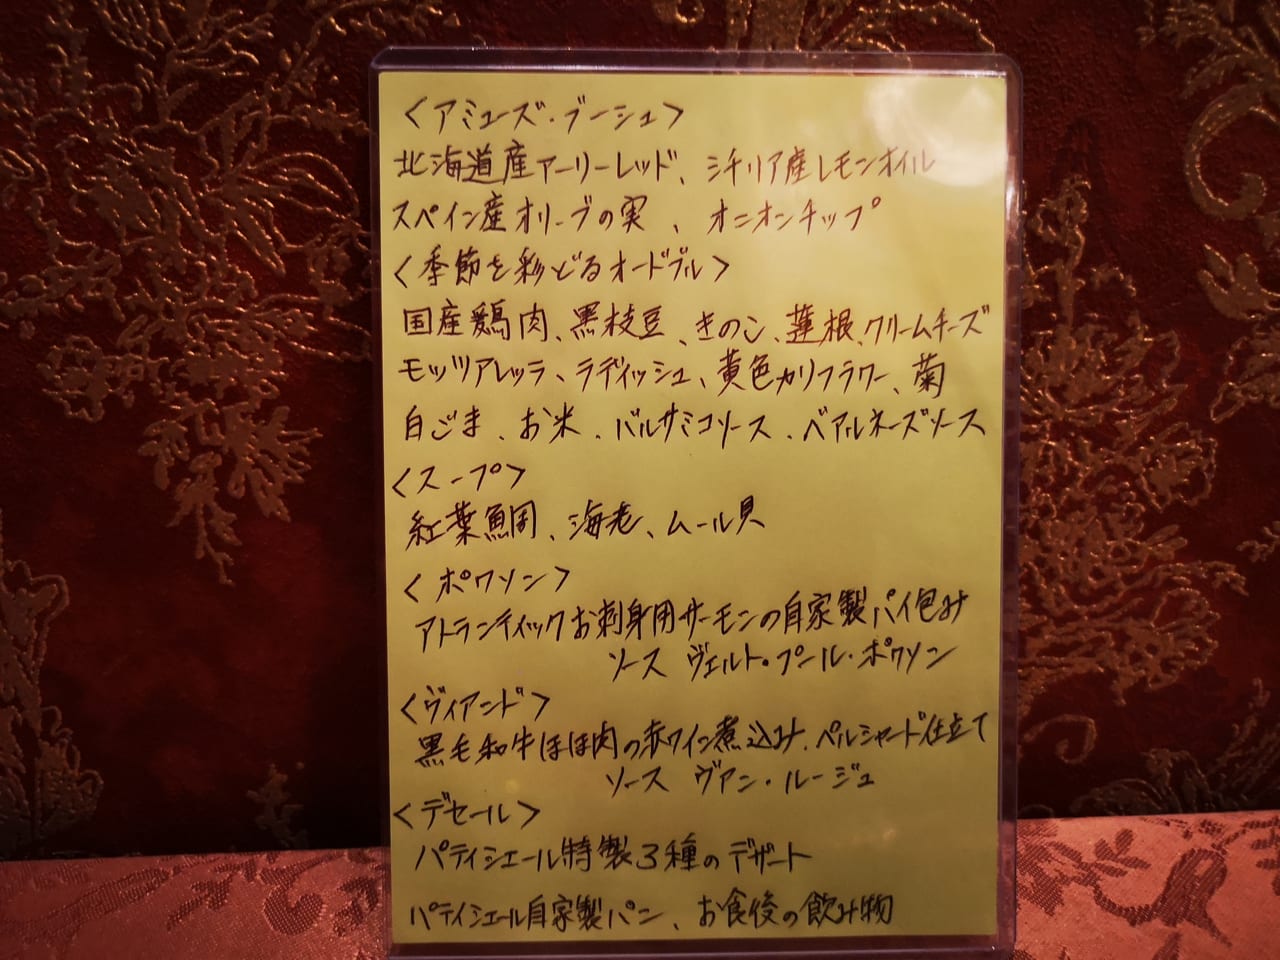 <アミューズ・ブーシュ>
北海道産アーリーレッド、シチリア産レモンオイル
スペイン産オリーブの実、オニオンチップ
<季節を彩どるオードブル>
国産鶏肉、黒枝豆、きのこ、蓮根、クリームチーズ
モッツアレッラ、ラディッシュ、黄色カリフラワー、菊
白ごま、お米、バルサミコソース、ベアルネーズソース
<スープ>
紅葉鯛、海老、ムール貝
<ポワソン>
アトランティックお刺身用サーモンの自家製パイ包み
ソース ヴェルト・プール・ポワソン
<ヴィアンド>
黒毛和牛ほほ肉の赤ワイン煮込み、ペルシャード仕立て
ソース ヴァン・ルージュ
<デセール>
パティシエール特製3種のデザート
パティシエール自家製パン、お食後の飲み物